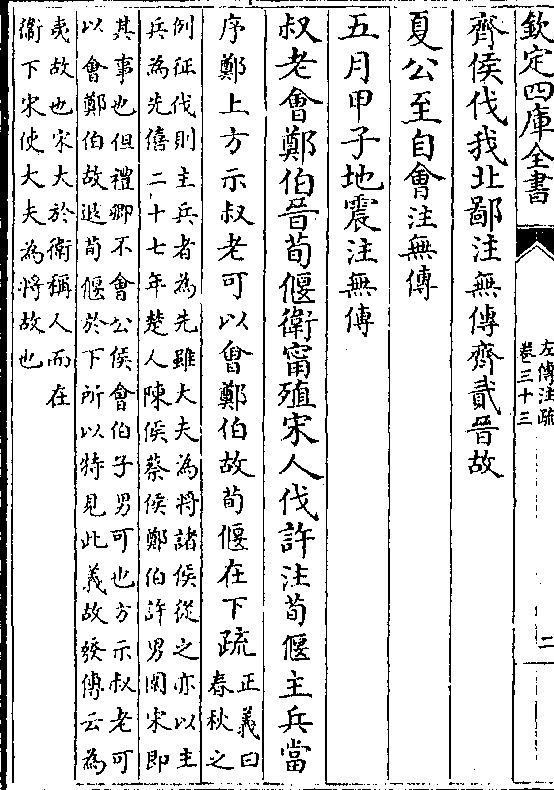 欽定四庫全書
左傳注疏
卷三十三
二
齊侯伐我北鄙注無傳齊貳晉故
夏公至自會注無傳
五月甲子地震注無傳
叔老會鄭伯晉荀偃衛甯殖宋人伐許注荀偃主兵當
序鄭上方示叔老可以會鄭伯故荀偃在下疏
正義曰
春秋之
例征伐則主兵者為先雖大夫為將諸侯從之亦以主
兵為先僖二十七年楚人陳侯蔡侯鄭伯許男圍宋即
其事也但禮卿不會公侯會伯子男可也方示叔老可
以會鄭伯故退荀偃於下所以特見此義故發傳云為
夷故也宋大於衛稱人而在
衛下宋使大夫為將故也